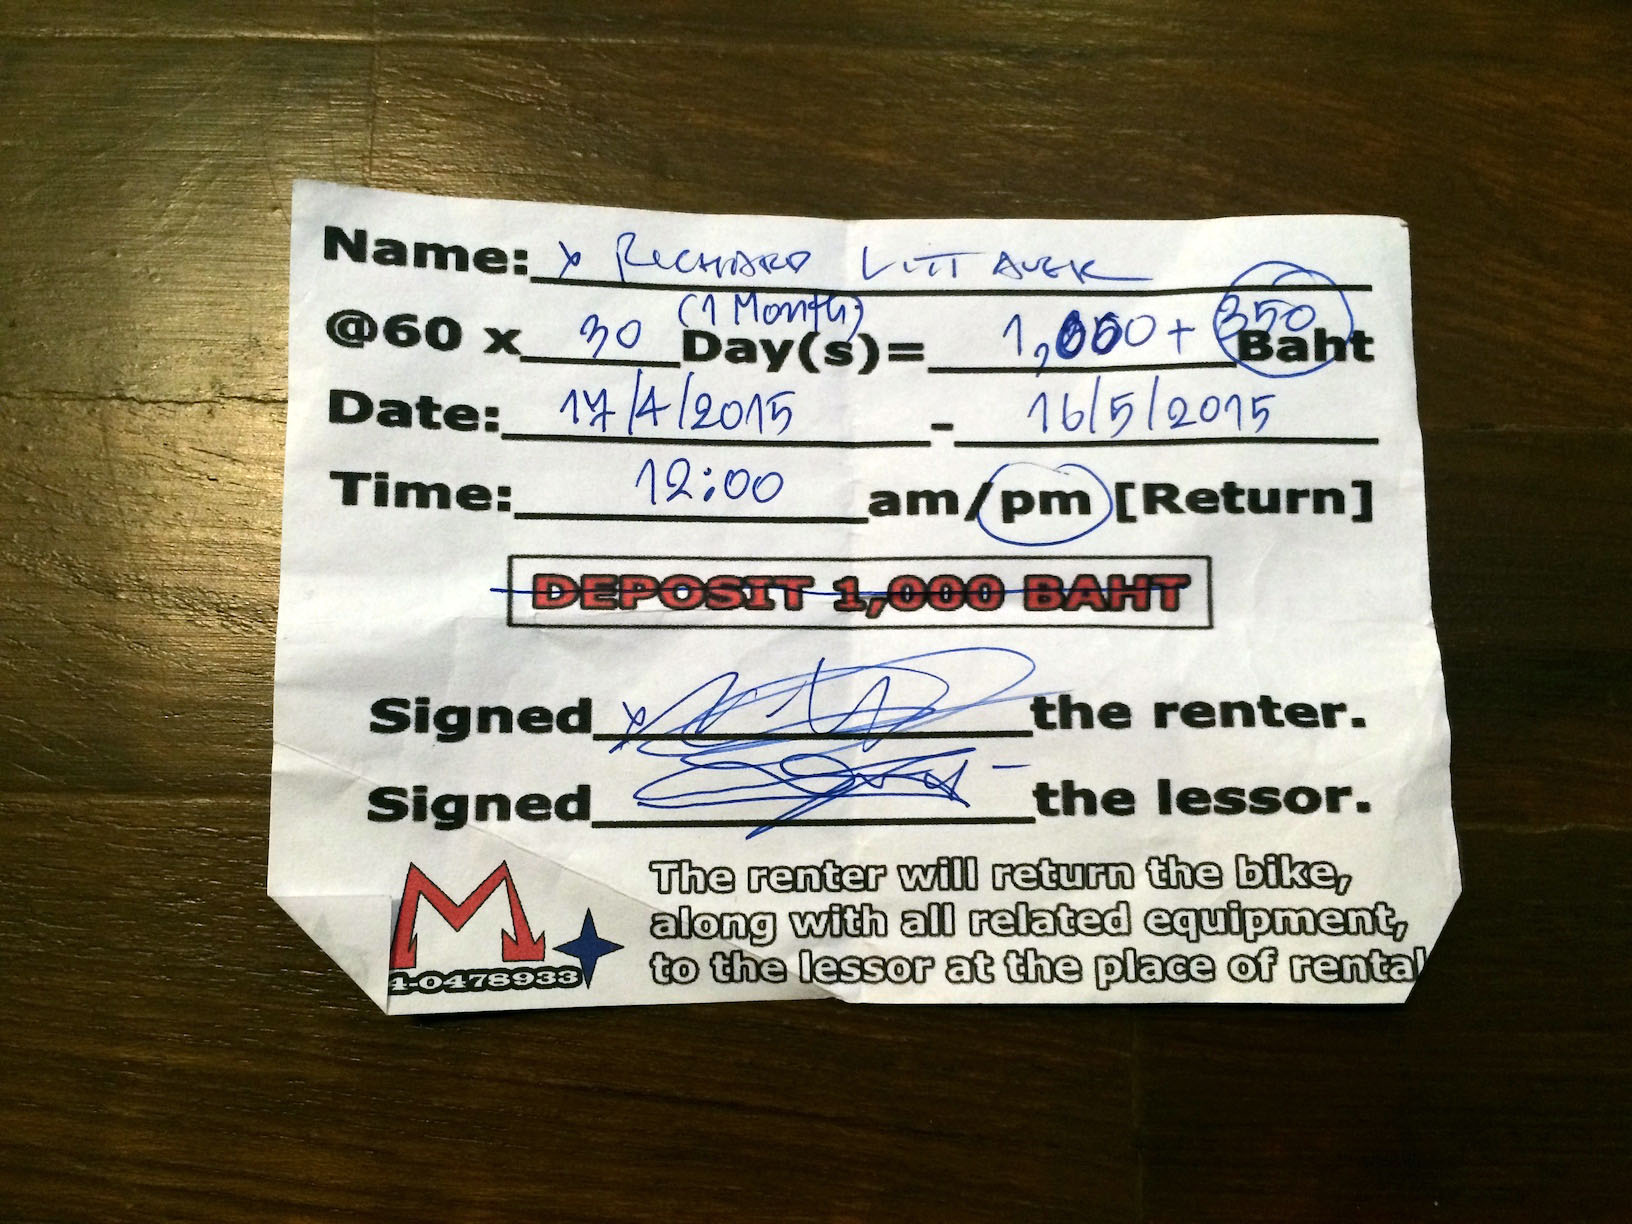 Name: x RICHARD LITTAUER
(1 Month)
@60 x 30 Day(s)= 1,000 + 350 Baht
Date: 17/4/2015 - 16/5/2015
Time: 12:00 am/pm [Return]
DEPOSIT 1,000 BAHT
Signed x the renter.
Signed the lessor.
The renter will return the bike,
along with all related equipment,
to the lessor at the place of rental
M
4-0478933